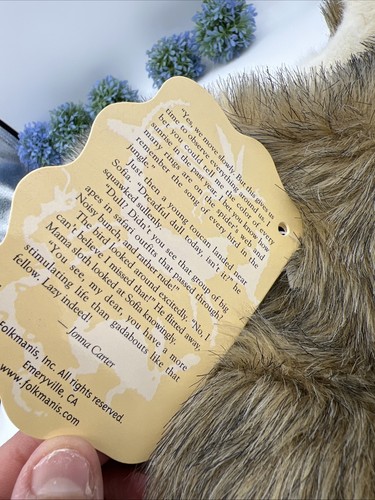 "Yes, we move slowly. But that gives us
time to observe everything around us. I
bet you could tell me the color of every
sunrise in the past year, and you know how
many rings are on the spider's web and
remember the song of every bird in the
jungle."
Just then a young toucan landed near
Sofia. "Dreadful dull today, isn't it?" he
squawked sullenly.
"Dull? Didn't you see that group of big
apes in safari outfits that passed through?
Noisy bunch and rather rude!"
The bird looked around excitedly. "No, I
can't believe I missed that!" He flitted away.
Mama sloth looked at Sofia knowingly.
"You see, my dear, you have a more
stimulating life than gadabouts like that
fellow. Lazy indeed!"
— Jonna Carter
Folkmanis, Inc. All rights reserved.
Emeryville, CA
www.folkmanis.com